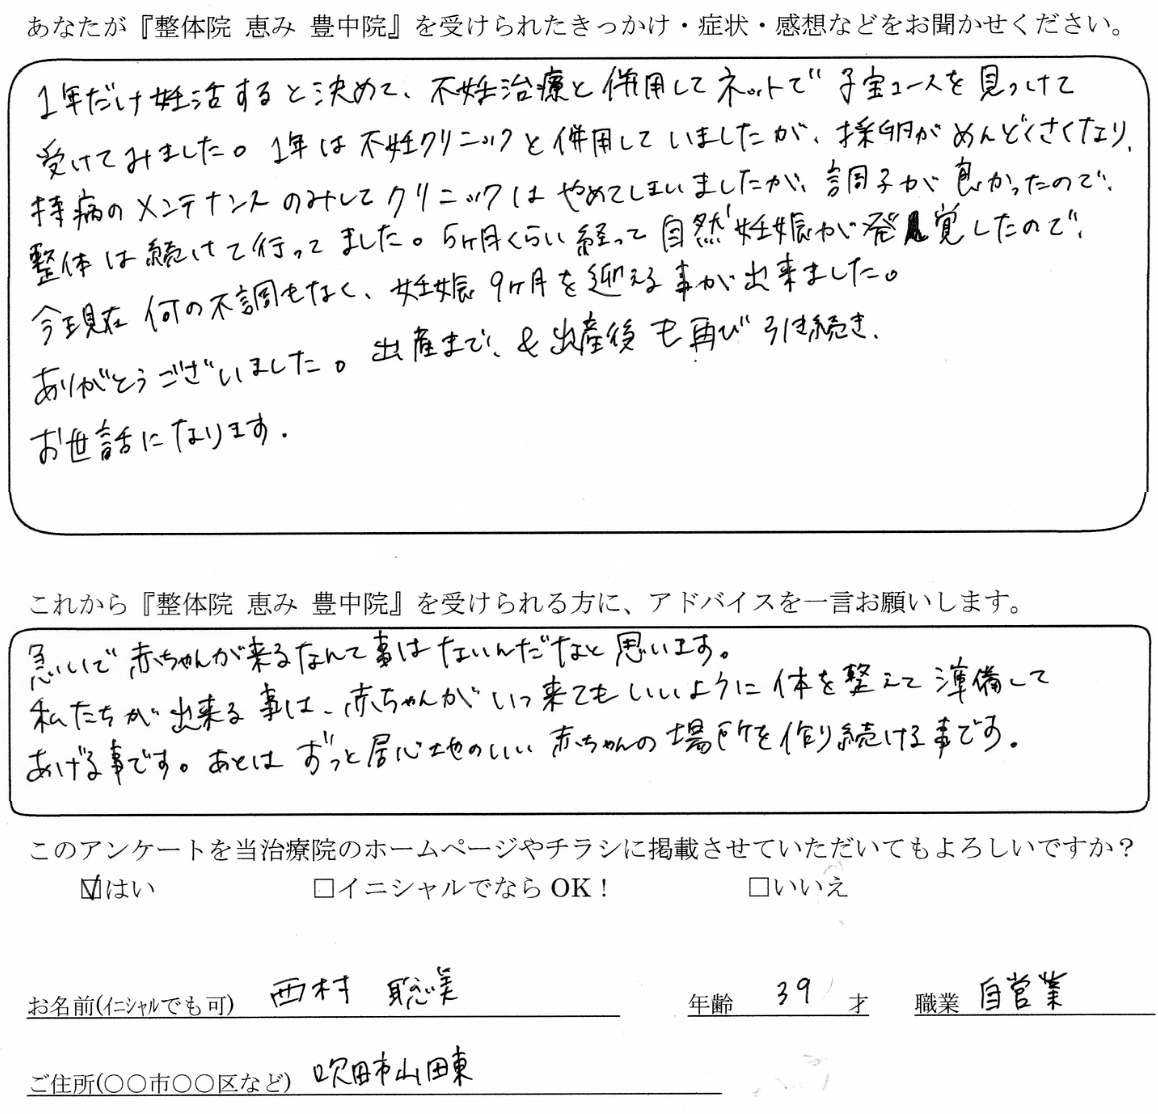 あなたが『整体院 恵み 豊中院』を受けられたきっかけ・症状・感想などをお聞かせください。
1年だけ妊活すると決めて、不妊治療と併用してネットで子宝コースを見つけて
受けてみました。1年は不妊クリニックと併用していましたが、採卵がめんどくさくなり、
持病のメンテナンスのみしてクリニックはやめてしまいましたが、調子が良かったので、
整体は続けて行ってました。5ヶ月くらい経って自然妊娠が発覚したので、
今現在何の不調もなく、妊娠9ヶ月を迎える事が出来ました。
ありがとうございました。出産まで、&出産後も再び引き続き、
お世話になります.
これから『整体院 恵み 豊中院』を受けられる方に、アドバイスを一言お願いします。
急いで赤ちゃんが来るなんて事はないんだなと思います。
私たちが出来る事は、赤ちゃんがいつ来てもいいように体を整えて準備して
あげる事です。あとはずっと居心地のいい赤ちゃんの場所を作り続ける事です。
このアンケートを当治療院のホームページやチラシに掲載させていただいてもよろしいですか？
☑はい □イニシャルでなら OK！ □いいえ
お名前(ｲﾆｼｬﾙでも可) 西村 聡美 年齢 39 才 職業 自営業
ご住所(〇〇市〇〇区など) 吹田市山田東